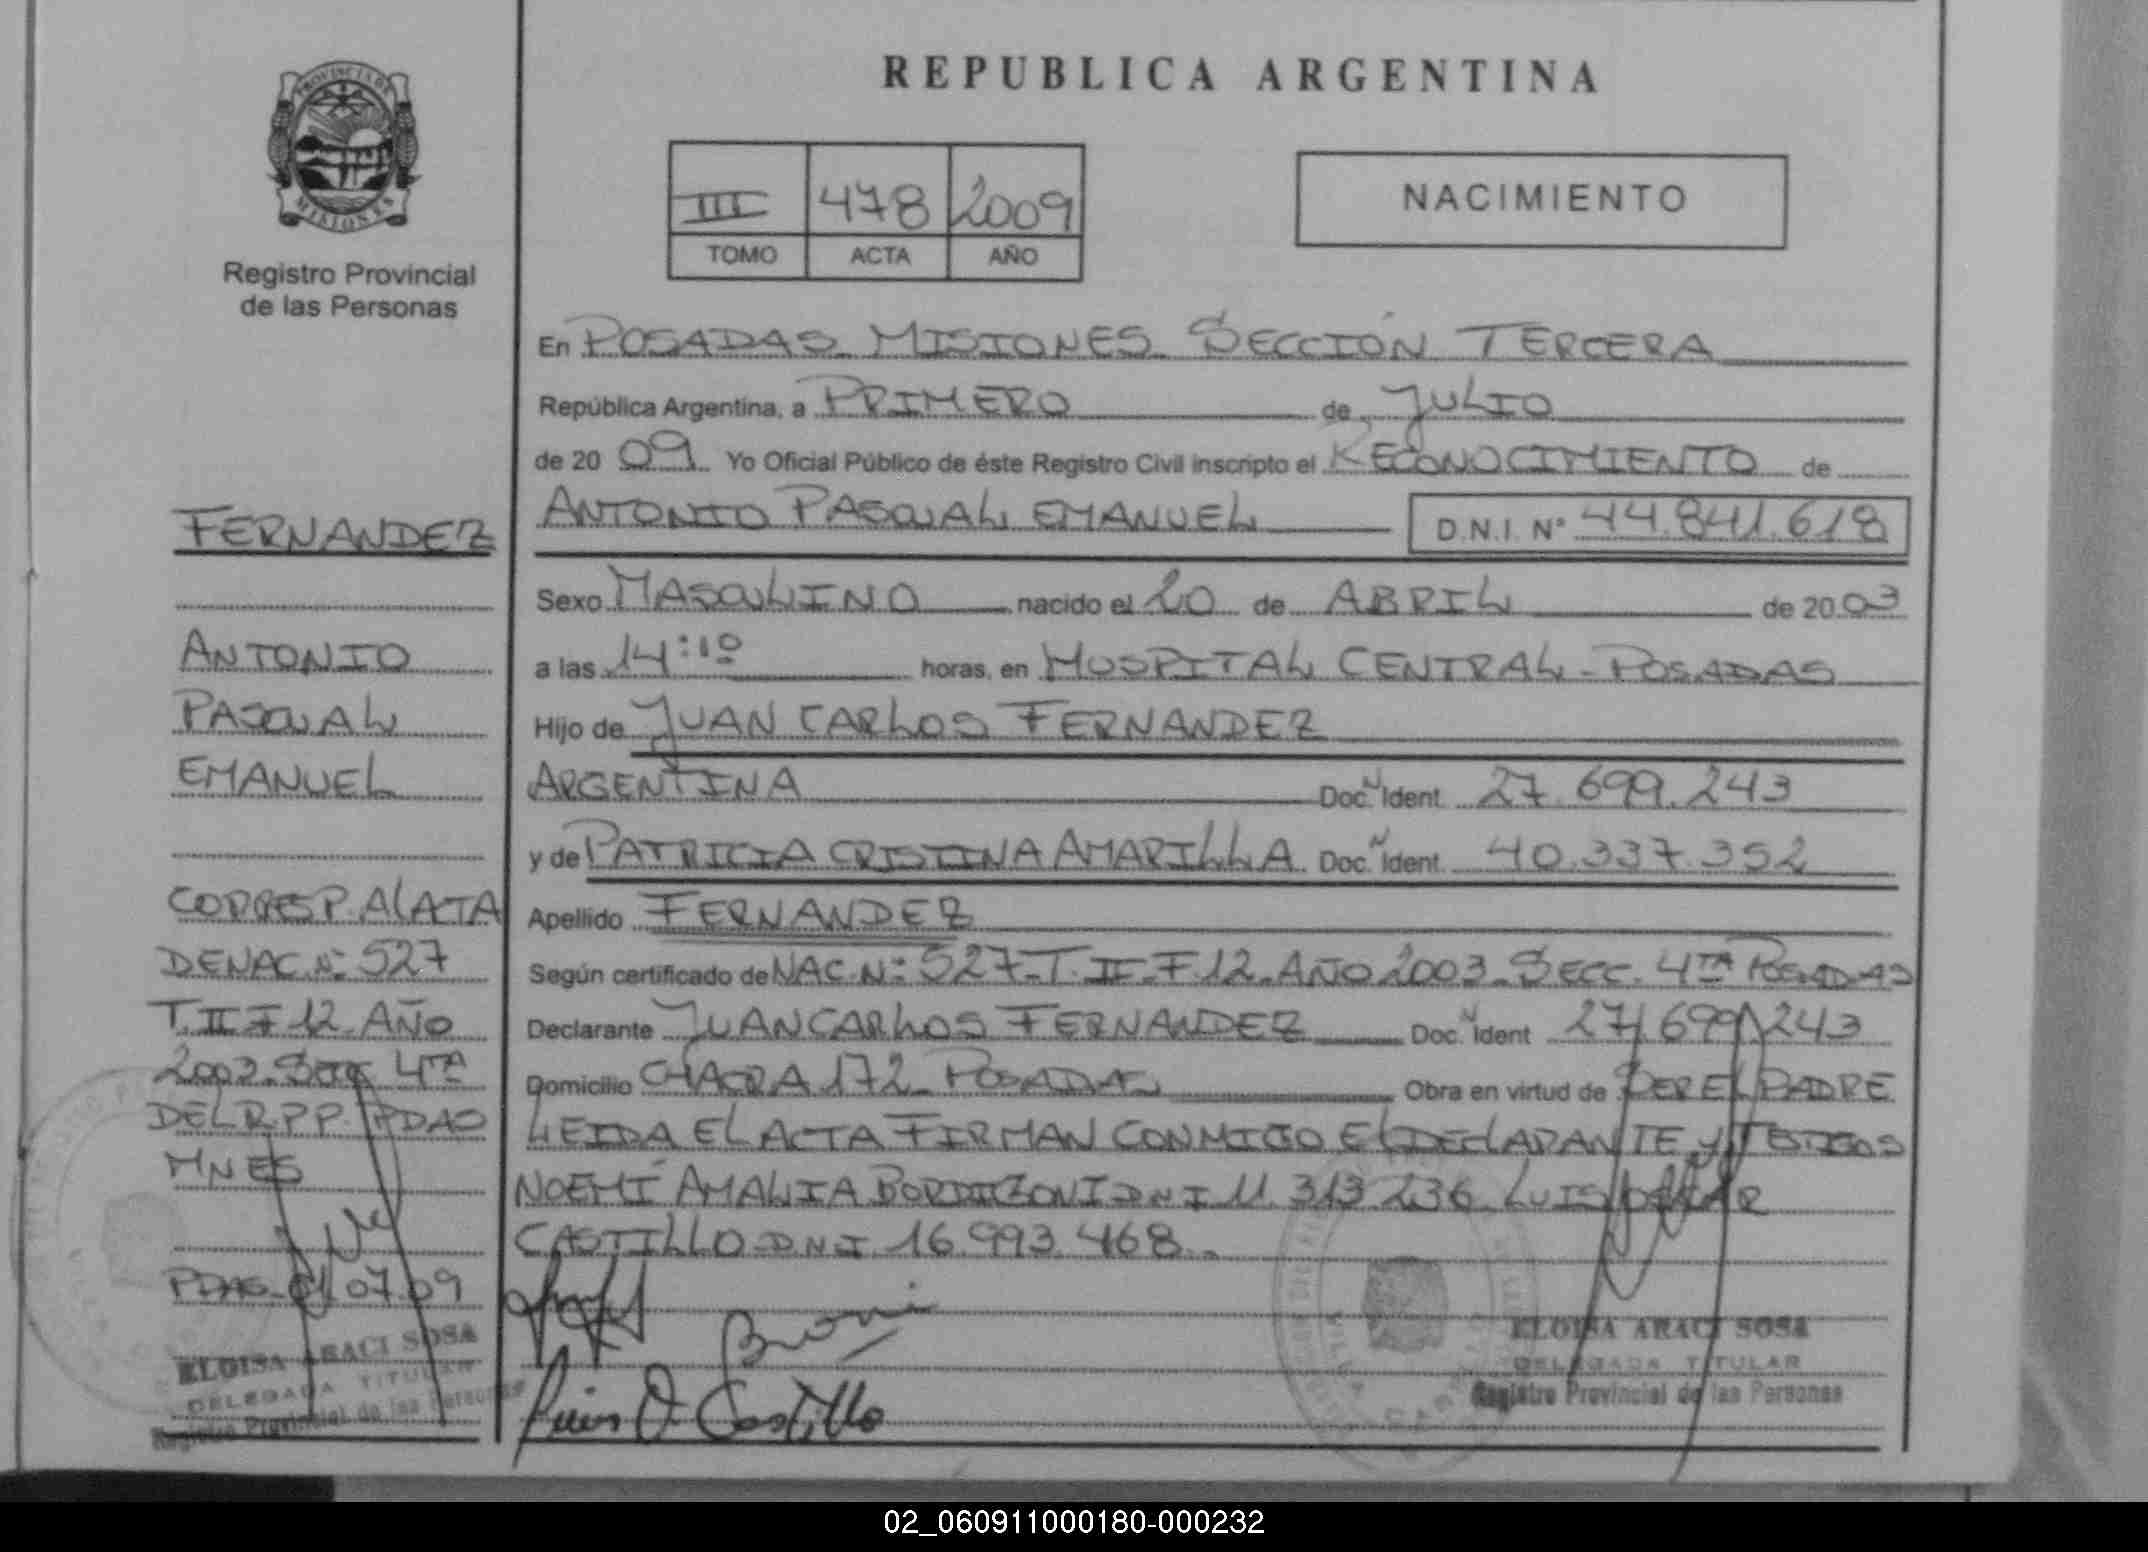 PROVINCIA DE
MISIONES
Registro Provincial
de las Personas
FERNANDEZ
ANTONIO
PASCUAL
EMANUEL
CORRESP. AL ACTA
DE NAC. Nº 527
T. II F 12. AÑO
2003. SECC 4TA
DEL R.P.P. PDAS
MNES
PDAS. 01 07.09
ELOISA ARACI SOSA
DELEGADA TITULAR
Registro Provincial de las Personas
REPUBLICA ARGENTINA
III 478 2009
TOMO ACTA AÑO
NACIMIENTO
En POSADAS. MISIONES. SECCIÓN TERCERA
República Argentina, a PRIMERO de JULIO
de 20 09 Yo Oficial Público de éste Registro Civil inscripto el RECONOCIMIENTO de
ANTONIO PASCUAL EMANUEL D.N.I. Nº 44.841.618
Sexo MASCULINO nacido el 20 de ABRIL de 20 03
a las 14:10 horas, en HOSPITAL CENTRAL - POSADAS
Hijo de JUAN CARLOS FERNANDEZ
ARGENTINA Doc. N Ident 27.699.243
y de PATRICIA CRISTINA AMARILLA Doc. N Ident 40.337.352
Apellido FERNANDEZ
Según certificado de NAC. Nº 527-T. II-F 12-AÑO 2003-SECC. 4TA POSADAS
Declarante JUAN CARLOS FERNANDEZ Doc. N Ident 27.699.243
Domicilio CHACRA 172 - POSADAS Obra en virtud de SER EL PADRE
LEIDA EL ACTA FIRMAN CONMIGO EL DECLARANTE Y TESTIGOS
NOEMÍ AMALIA DNI 11.313.236 LUIS
CASTILLO DNI 16.993.468.
Luis O Castillo
ELOISA ARACI SOSA
DELEGADA TITULAR
Registro Provincial de las Personas
02_060911000180-000232